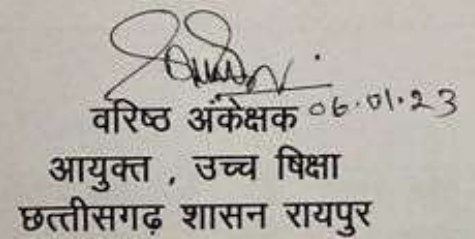 वरिष्ठ अंकेक्षक 06.01.23
आयुक्त , उच्च षिक्षा
छत्तीसगढ़ शासन रायपुर